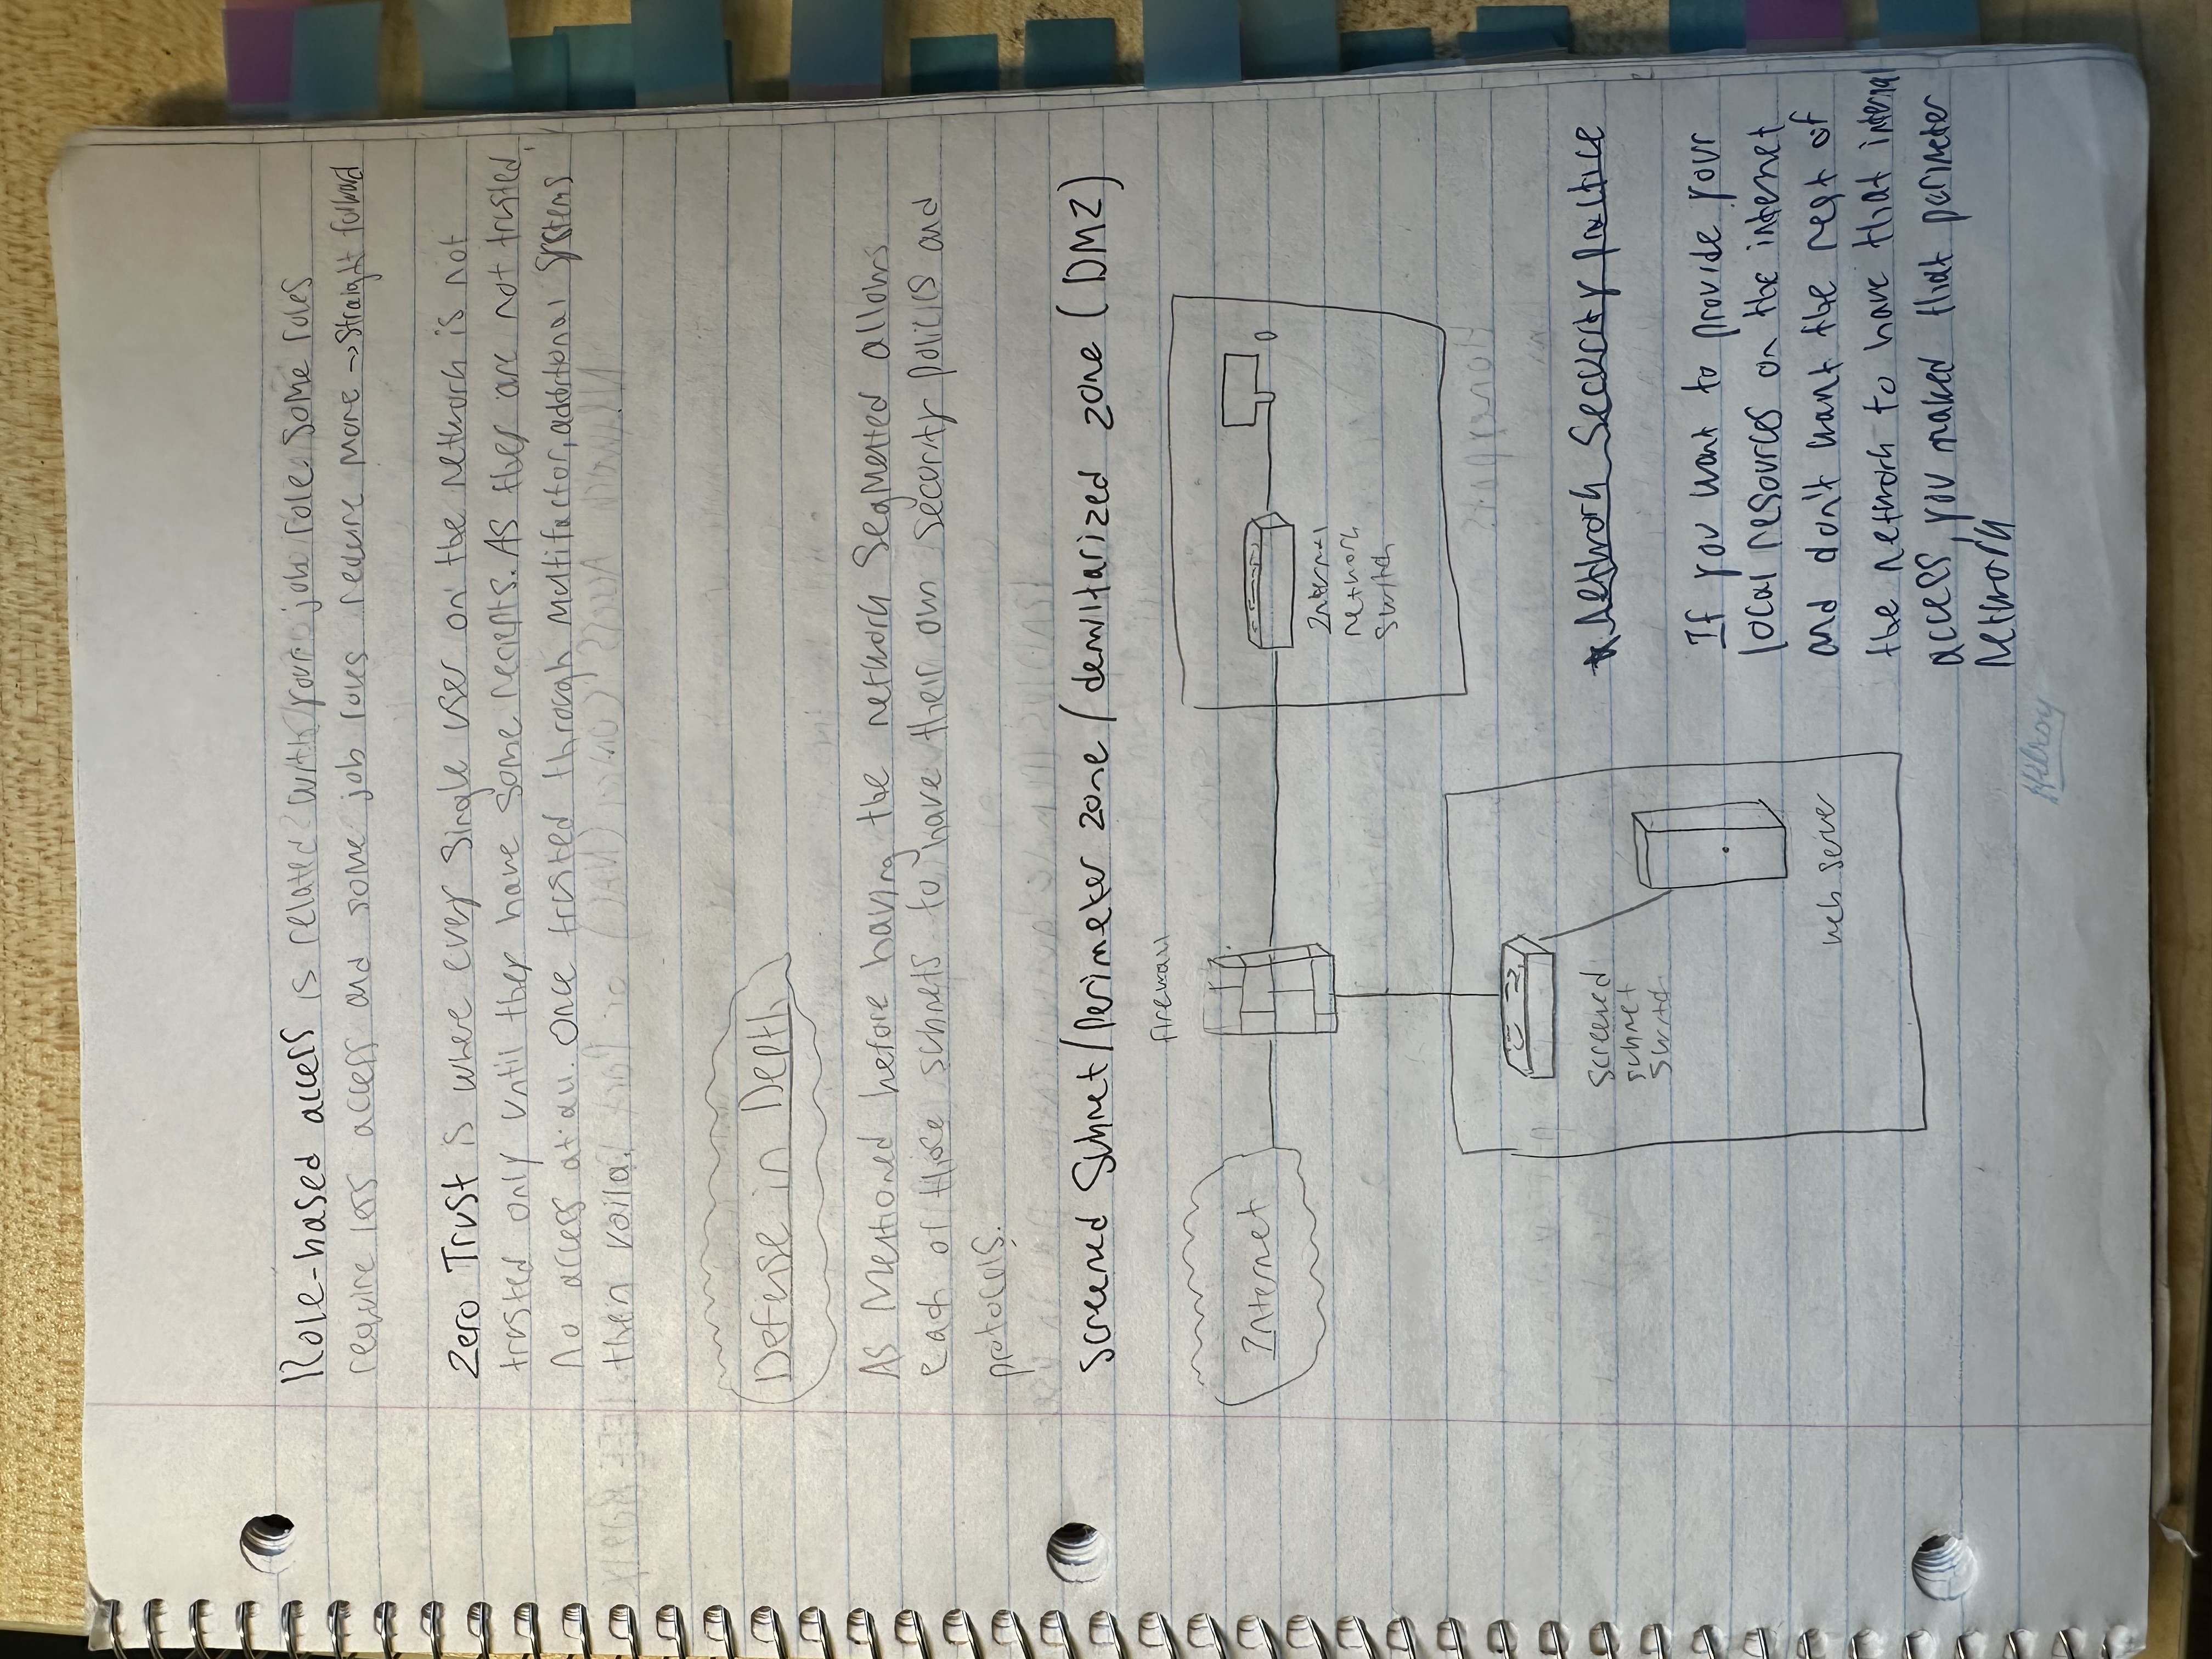 Role-based access is related with your job role. Some roles
require less access and some job roles require more → Straight forward
Zero Trust is where every single user on the network is not
trusted only until they have some reciepts. As they are not trusted,
no access at all. Once trusted through multifactor, additional systems
then voila.
Defense in Depth
As Mentioned before having the network segmented allows
each of those subnets to have their own security policies and
protocols.
Screened Subnet/Perimeter zone/demilitarized zone (DMZ)
firewall
Internet
Internal
network
switch
screened
subnet
switch
web server
* Network Security Practice
If you want to provide your
local resources on the internet
and don't want the rest of
the network to have that internal
access, you maked that perimeter
network
Hilroy